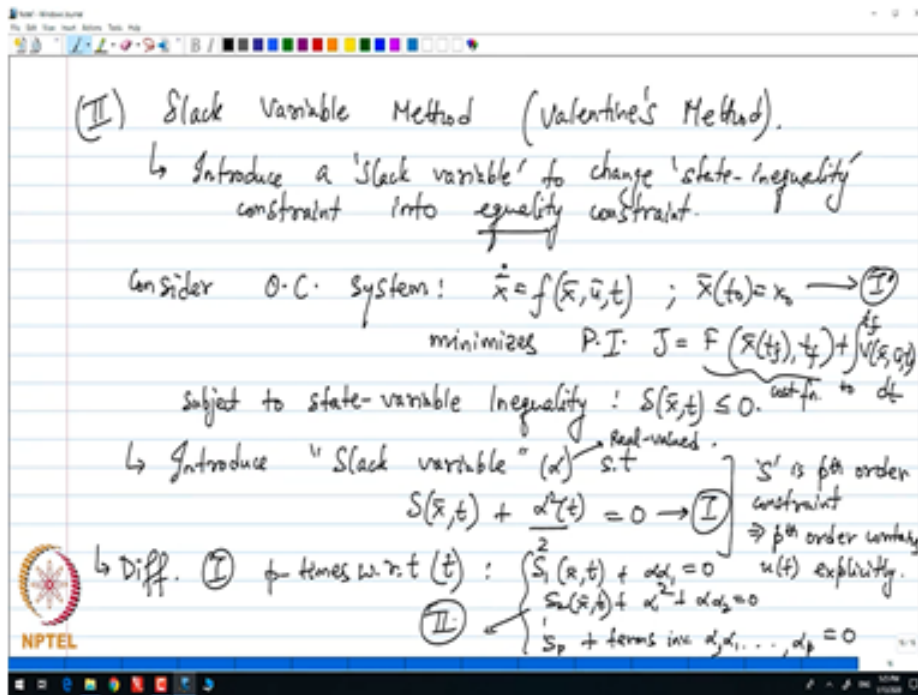 (II) Slack Variable Method (Valentine's Method).
↳ Introduce a 'Slack variable' to change 'state-inequality'
constraint into equality constraint.
Consider O.C. system: ẋ̄ = f(x̄, ū, t) ; x̄(t₀) = x₀ → (I')
minimizes P.I. J = F(x̄(t_f), t_f) + ∫_{t₀}^{t_f} V(x̄, ū, t) dt
cost fn.
subject to state-variable Inequality : S(x̄,t) ≤ 0.
↳ Introduce "Slack variable" (α) s.t
Real-valued.
S(x̄,t) + α²(t)/2 = 0 → (I)
'S' is pth order
constraint
⇒ pth order contains
u(t) explicitly.
↳ Diff. (I) p times w.r.t (t) : S₁(x,t) + αα₁ = 0
(II) S₂(x̄,t) + α₁² + αα₂ = 0
S_p + terms inc α,α₁...., α_p = 0
NPTEL